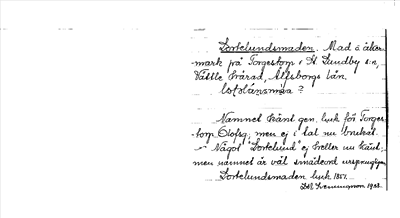 Dortelundsmaden. Mad å åker-
mark på Torgestorp i St. Lundby s:n,
Vättle härad, Älfsborgs län.

Namnet känt gen. bruk för Torges-
torp Olofsg. men ej i tal nu brukat.
- Något "Dortelund" ej heller nu känt,
men namnet är väl smädeord ursprungligen.
Dortelundsmaden bruk. 1851.
1933.